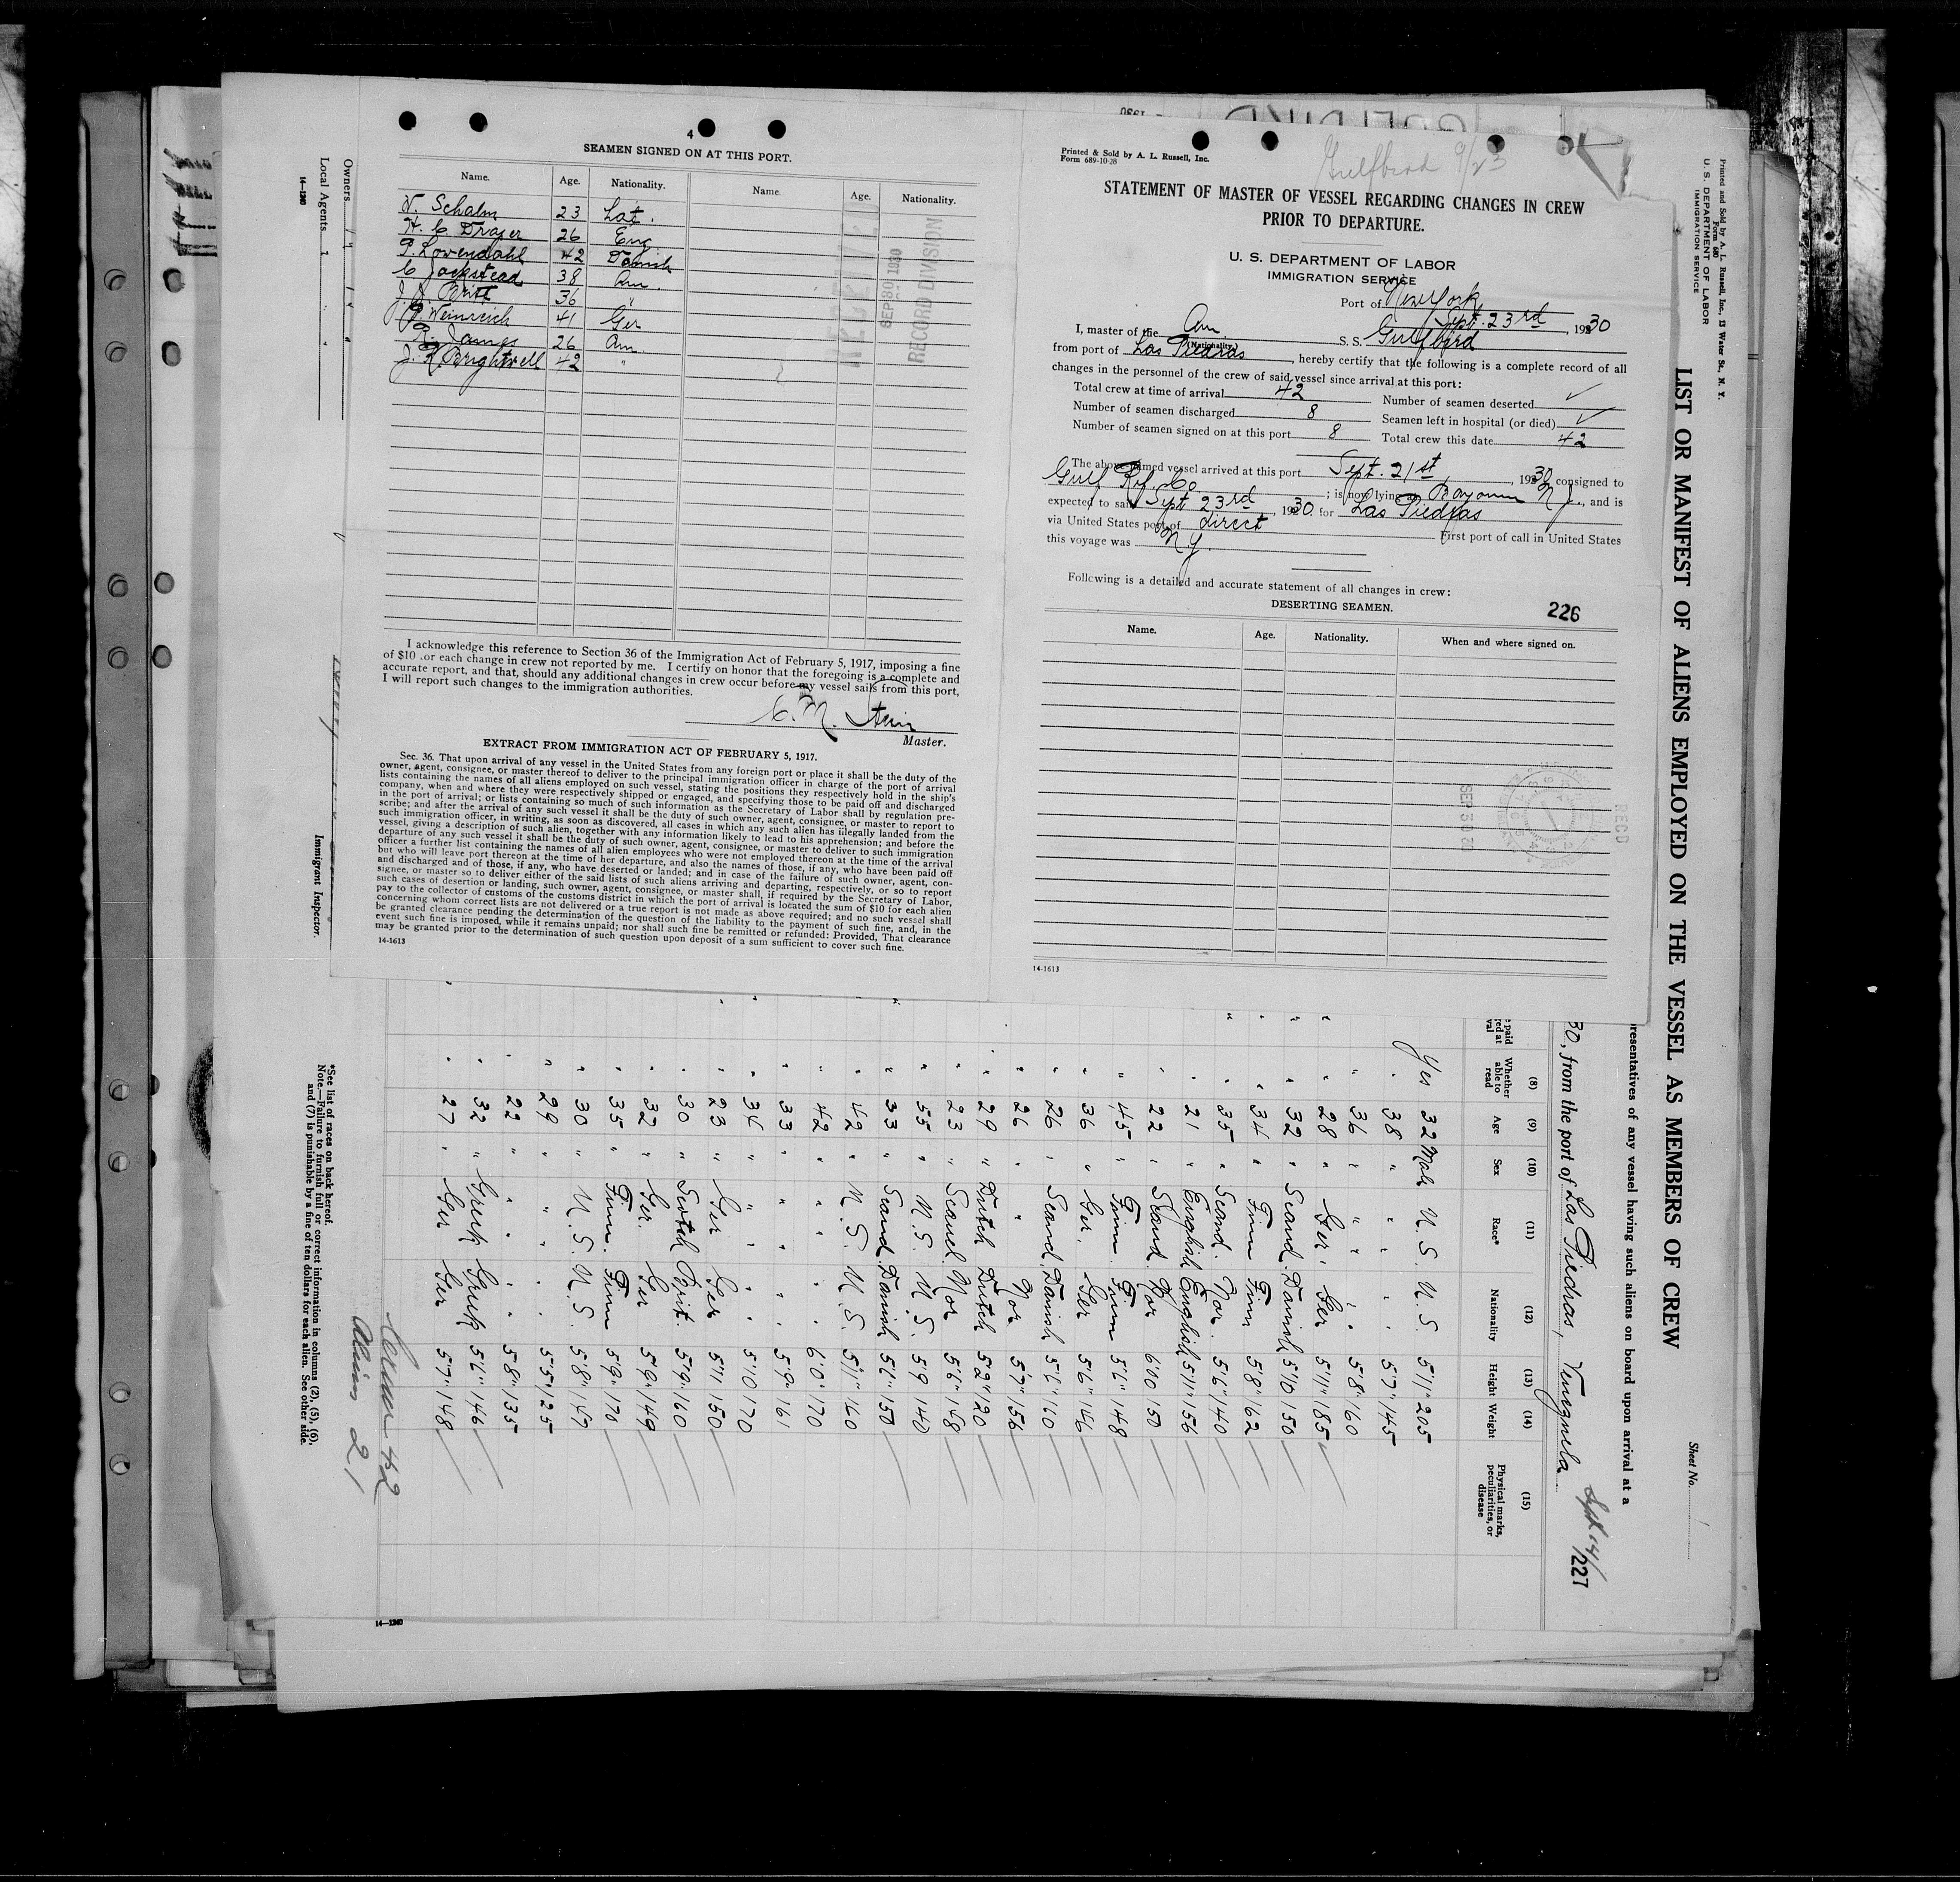 4
SEAMEN SIGNED ON AT THIS PORT.
Name. Age. Nationality. Name. Age. Nationality.
V. Schalm 23 Lat.
H. C Draper 26 Eng
P. Lovendahl 42 Danish
C Jackstead 38 Am.
J. J. Britt 36 "
P. Weinreich 41 Ger
R. James 26 Am
J. R Brightwell 42 "
SEP 30 1930
RECORD DIVISION
I acknowledge this reference to Section 36 of the Immigration Act of February 5, 1917, imposing a fine
of $10 for each change in crew not reported by me. I certify on honor that the foregoing is a complete and
accurate report, and that, should any additional changes in crew occur before my vessel sails from this port,
I will report such changes to the immigration authorities.
C. M. Stein
Master.
EXTRACT FROM IMMIGRATION ACT OF FEBRUARY 5, 1917.
Sec. 36. That upon arrival of any vessel in the United States from any foreign port or place it shall be the duty of the
owner, agent, consignee, or master thereof to deliver to the principal immigration officer in charge of the port of arrival
lists containing the names of all aliens employed on such vessel, stating the positions they respectively hold in the ship's
company, when and where they were respectively shipped or engaged, and specifying those to be paid off and discharged
in the port of arrival; or lists containing so much of such information as the Secretary of Labor shall by regulation pre-
scribe; and after the arrival of any such vessel it shall be the duty of such owner, agent, consignee, or master to report to
such immigration officer, in writing, as soon as discovered, all cases in which any such alien has illegally landed from the
vessel, giving a description of such alien, together with any information likely to lead to his apprehension; and before the
departure of any such vessel it shall be the duty of such owner, agent, consignee, or master to deliver to such immigration
officer a further list containing the names of all alien employees who were not employed thereon at the time of the arrival
but who will leave port thereon at the time of her departure, and also the names of those, if any, who have been paid off
and discharged and of those, if any, who have deserted or landed; and in case of the failure of such owner, agent, con-
signee, or master so to deliver either of the said lists of such aliens arriving and departing, respectively, or so to report
such cases of desertion or landing, such owner, agent, consignee, or master shall, if required by the Secretary of Labor,
pay to the collector of customs of the customs district in which the port of arrival is located the sum of $10 for each alien
concerning whom correct lists are not delivered or a true report is not made as above required; and no such vessel shall
be granted clearance pending the determination of the question of the liability to the payment of such fine, and, in the
event such fine is imposed, while it remains unpaid; nor shall such fine be remitted or refunded: Provided, That clearance
may be granted prior to the determination of such question upon deposit of a sum sufficient to cover such fine.
14-1613
Printed & Sold by A. L. Russell, Inc.
Form 689-10-28
Gulfbird 9/23
STATEMENT OF MASTER OF VESSEL REGARDING CHANGES IN CREW
PRIOR TO DEPARTURE.
U. S. DEPARTMENT OF LABOR
IMMIGRATION SERVICE
Port of New York
Sept. 23rd, 1930
I, master of the Am S. S. Gulfbird
(Nationality.)
from port of Las Piedras, hereby certify that the following is a complete record of all
changes in the personnel of the crew of said vessel since arrival at this port:
Total crew at time of arrival 42 Number of seamen deserted ✓
Number of seamen discharged 8 Seamen left in hospital (or died) ✓
Number of seamen signed on at this port 8 Total crew this date 42
The above named vessel arrived at this port Sept. 21st, 1930 consigned to
Gulf Ref. Co. ; is now lying at Bayonne N J., and is
expected to sail Sept 23rd, 1930 for Las Piedras
via United States port of direct First port of call in United States
this voyage was N.Y.
Following is a detailed and accurate statement of all changes in crew:
DESERTING SEAMEN.
226
Name. Age. Nationality. When and where signed on.
SEP 30
RECD
14-1613
Printed and Sold by A. L. Russell, Inc., 13 Water St., N. Y.
Form 680
U. S. DEPARTMENT OF LABOR
IMMIGRATION SERVICE
Sheet No.
LIST OR MANIFEST OF ALIENS EMPLOYED ON THE VESSEL AS MEMBERS OF CREW
resentatives of any vessel having such aliens on board upon arrival at a
30, from the port of Las Piedras, Venezuela Sept 14/
227
(8) (9) (10) (11) (12) (13) (14) (15)
Whether able to read Age Sex Race* Nationality Height Weight Physical marks, peculiarities, or disease
Yes 32 Male U. S. U. S. 5'11" 205
" 38 " " " 5'7" 145
" 36 " " " 5'8" 160
" 28 " Ger. Ger 5'11" 185
" 32 " Scand. Danish 5'10 150
" 34 " Finn Finn 5'8" 162
" 35 " Scand. Nor. 5'6" 140
" 21 " English English 5'11" 156
" 22 " Scand. Nor 6'0 150
" 45 " Finn. Finn 5'6" 148
" 36 " Ger. Ger 5'6" 146
" 26 " Scand. Danish 5'6" 160
" 26 " " Nor 5'7" 156
" 29 " Dutch Dutch 5'2" 120
" 23 " Scand. Nor 5'6" 148
" 55 " U. S. U. S. 5'9 140
" 33 " Scand. Danish 5'6" 150
" 42 " U. S. U. S. 5'11" 160
" 42 " " " 6'0" 170
" 33 " " " 5'9" 161
" 34 " " " 5'10 170
" 23 " Ger Ger 5'11 150
" 30 " Scotch Brit. 5'9" 160
" 32 " Ger. Ger 5'9" 149
" 35 " Finn. Finn 5'9" 170
" 30 " U. S. U. S. 5'8" 147
" 29 " " " 5'5" 125
" 22 " " " 5'8" 135
" 32 " Greek Greek 5'6" 146
" 27 " Ger Ger 5'7" 148
Crew 42
Aliens 21
*See list of races on back hereof.
Note.—Failure to furnish full or correct information in columns (2), (5), (6),
and (7) is punishable by a fine of ten dollars for each alien. See other side.
14—1240
Owners
Local Agents
Immigrant Inspector.
14—1240